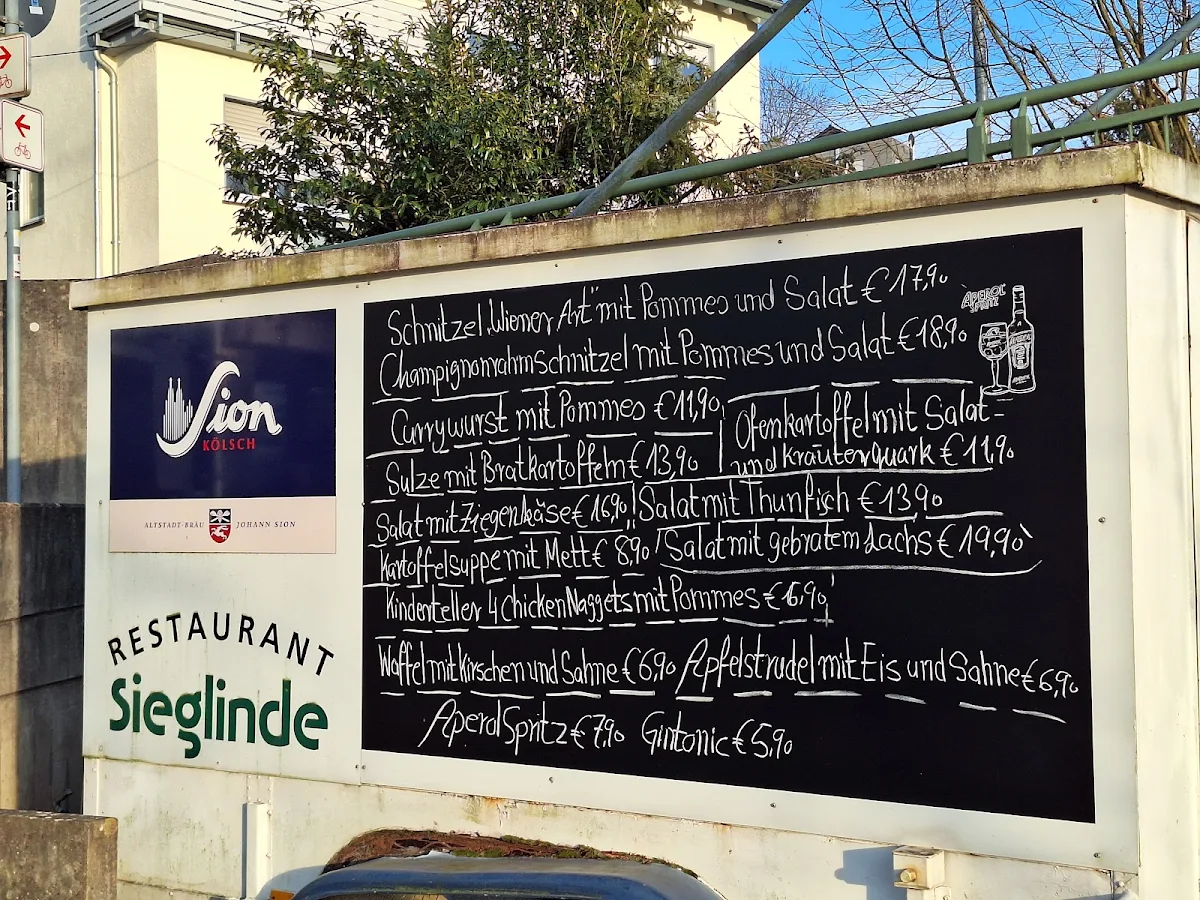 Sion
KÖLSCH
ALTSTADT-BRÄU JOHANN SION
RESTAURANT
Sieglinde
Schnitzel „Wiener Art" mit Pommes und Salat € 17,90
Champignonrahmschnitzel mit Pommes und Salat € 18,90
APEROL
SPRITZ
Currywurst mit Pommes € 11,90
Ofenkartoffel mit Salat-
und Kräuterquark € 11,90
Sülze mit Bratkartoffeln € 13,90
Salat mit Ziegenkäse € 16,90
Salat mit Thunfisch € 13,90
Kartoffelsuppe mit Mett € 8,90
Salat mit gebratem Lachs € 19,90
Kinderteller 4 Chicken Naggets mit Pommes € 6,90
Waffel mit Kirschen und Sahne € 6,90
Apfelstrudel mit Eis und Sahne € 6,90
Aperol Spritz € 7,90 Gintonic € 5,90